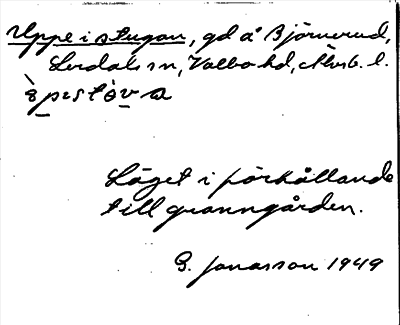 Uppe i stugan, gd å Björnerud,
Lerdals sn, Valbo hd, Älvsb. l.
Läget i förhållande
till granngården.
G. Jonasson 1949